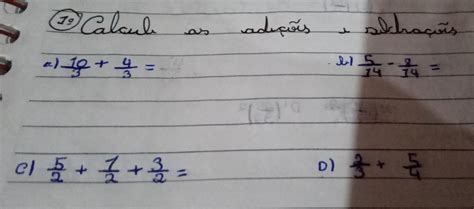 1º Calcule as adições e subtrações
a) 10/3 + 4/3 =
b) 5/14 - 2/14 =
c) 5/2 + 7/2 + 3/2 =
D) 2/3 + 5/4